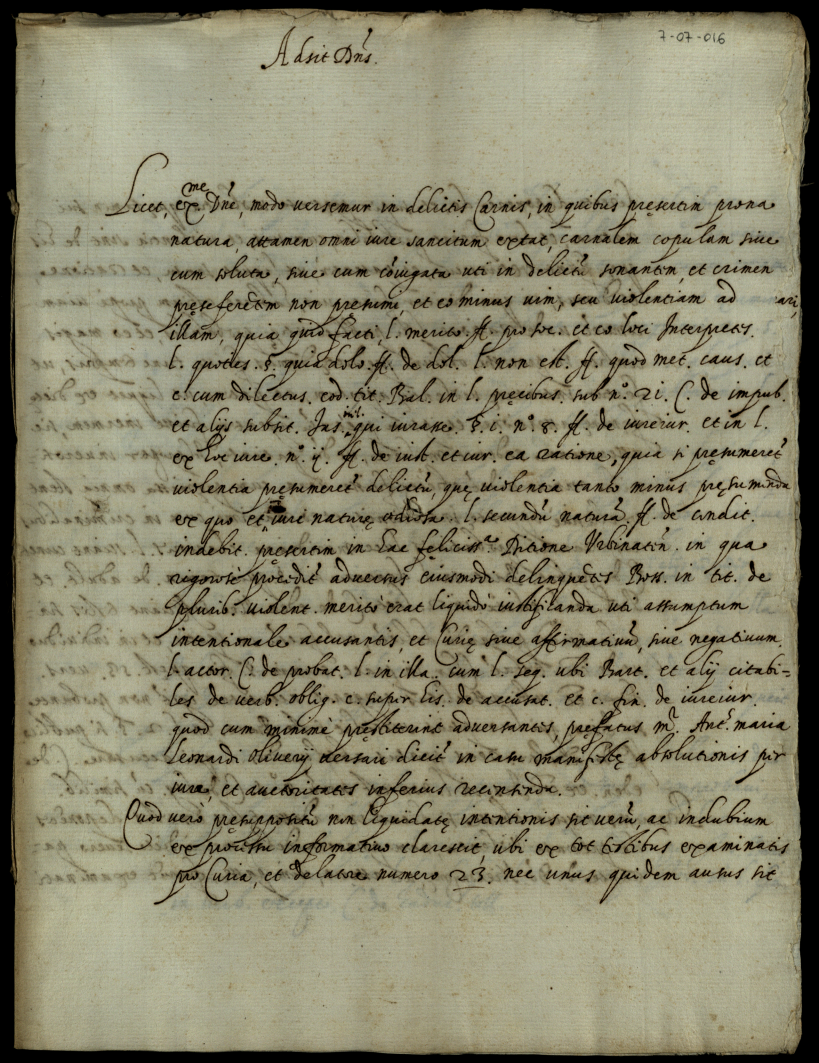 7-07-016
Adsit Dñs.
Licet, ex.me Dñe, modo versemur in delictis Carnis, in quibus pręsertim prona
natura, attamen omni iure sancitum extat, carnalem copulam sive
cum soluta, sive cum cõiugata uti in delictũ sonantem, et crimen
pręseferentem non presumi, et eo minus vim, seu violentiam ad
illam, quia quid facti, l. merito ff. pro soc. et eo loci Interpretes.
l. quoties. §. quia dolo. ff. de dol. l. non est. ff. quod met. caus. et
c. cum dilectus. eod. tit. Bal. in l. pręcibus. sub n.º 21. C. de impub.
et alijs subst. Jas. in l. qui iurasse. §. i. n.º 8. ff. de iureiur. et in l.
ex hoc iure. n.º 4. ff. de iust. et iur. ea ratione, quia si pręsumeret
violentia pręsumeret delictũ, quę violentia tanto minus pręsumenda
ex quo et iure naturę odiosa. l. secundũ naturã. ff. de condit.
indebit. pręsertim in hac feliciss.ª Ditione Urbinaten. in qua
rigorosè procedit adversus eiusmodi delinquetes Boss. in tit. de
plurib. violent. meritò erat liquidò iustificanda uti assumptum
intentionale accusantis, et Curię sive affirmativũ, sive negativum.
l. actor. C. de probat. l. in illa. cum l. seq. ubi Bart. et alij citabi=
les de verb. oblig. c. super his. de accusat. et c. fin. de iureiur.
quod cum minimè pręstiterint adversantes, pręfatus m.r Ant.s maria
Leonardi Oliverij versari dicit in casu manifestę absolutionis per
iura, et auctoritates inferius recensenda.
Quod verò pręsuppositũ non liquidatę intentionis sit verũ, ac indubium
ex processu informativo clarescit, ubi ex tot testibus examinatis
pro Curia, et delatore numero 23. nec unus quidem ausus sit